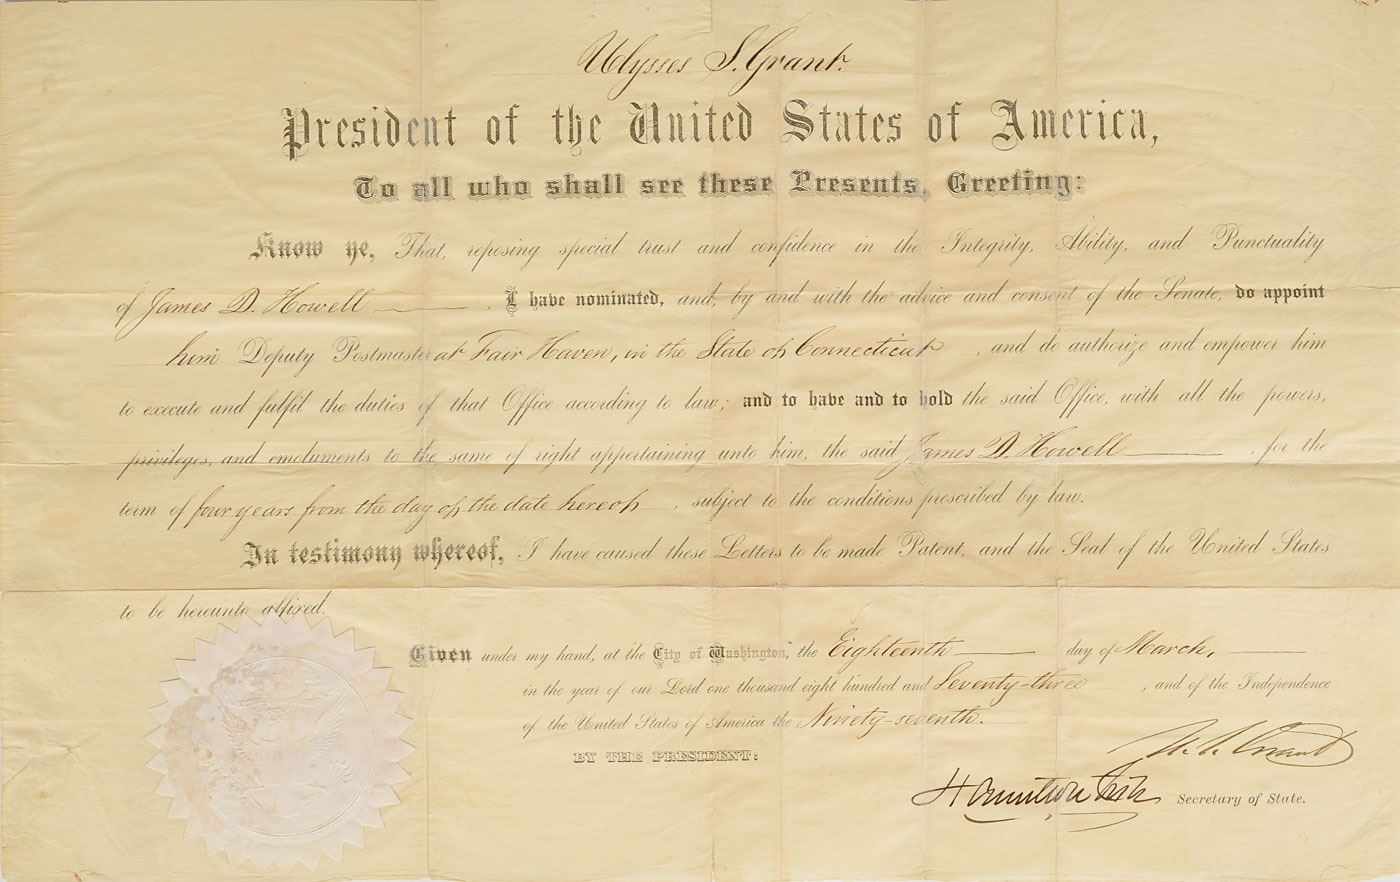 Ulysses S. Grant.
President of the United States of America,
To all who shall see these Presents, Greeting:
Know ye, That, reposing special trust and confidence in the Integrity, Ability, and Punctuality
of James D. Howell, I have nominated, and, by and with the advice and consent of the Senate, do appoint
him Deputy Postmaster at Fair Haven, in the State of Connecticut, and do authorize and empower him
to execute and fulfil the duties of that Office according to law; and to have and to hold the said Office, with all the powers,
privileges, and emoluments to the same of right appertaining unto him, the said James D. Howell, for the
term of four years from the day of the date hereof, subject to the conditions prescribed by law.
In testimony whereof, I have caused these Letters to be made Patent, and the Seal of the United States
to be hereunto affixed.
Given under my hand, at the City of Washington, the Eighteenth day of March,
in the year of our Lord one thousand eight hundred and Seventy-three, and of the Independence
of the United States of America the Ninety-seventh.
BY THE PRESIDENT:
U. S. Grant
Hamilton Fish Secretary of State.